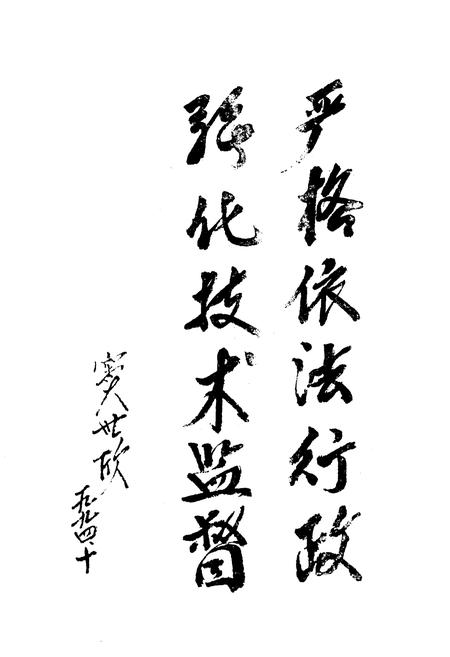 严格依法行政
强化技术监督
窦世欣
一九九四、十